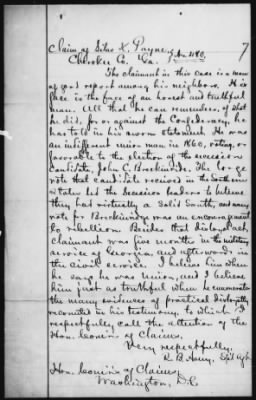 Claim of Silas X. Payne, No. 2180.
Cherokee Co. Ga.
7
The claimant in this case is a man
of good report among his neighbors. His
face is the face of an honest and truthful
man. All that he can remember, of what
he did, for or against the Confederacy, he
has told in his sworn statement. He was
an indifferent union man in 1860, voting, or
favorable to the election of the secession
candidate, John C. Breckinridge. The large
vote that candidate received in the Southern
states led the Secession leaders to believe
they had virtually a Solid South, and every
vote for Breckinridge was an encouragement
to rebellion. Besides that disloyal act,
claimant was five months in the military
service of Georgia, and afterwards in
the civil service. I believe him when
he says he was Union, and I believe
him just as truthful when he enumerates
the many evidences of practical disloyalty
recounted in his testimony, to which I
respectfully call the attention of the
Hon. Com'rs of Claims.
Very respectfully,
R. B. Avery, Sp'l Ag't.
Hon. Com'rs of Claims,
Washington, D.C.